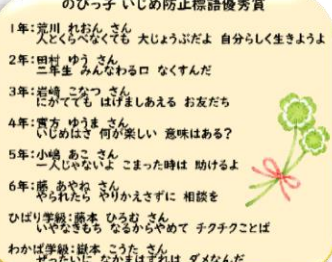 のびっ子 いじめ防止標語優秀賞
1年:荒川 れおん さん
人とくらべなくても 大じょうぶだよ 自分らしく生きようよ
2年:田村 ゆう さん
二年生 みんなわる口 なくすんだ
3年:岩崎 こなつ さん
にがてでも はげましあえる お友だち
4年:實方 ゆうま さん
いじめはさ 何が楽しい 意味はある?
5年:小嶋 あこ さん
一人じゃないよ こまった時は 助けるよ
6年:藤 あやね さん
やられたら やりかえさずに 相談を
ひばり学級:藤本 ひろむ さん
いやなきもち なるからやめて チクチクことば
わかば学級:嶽本 こうた さん
ぜったいに なかまはずれは ダメなんだ